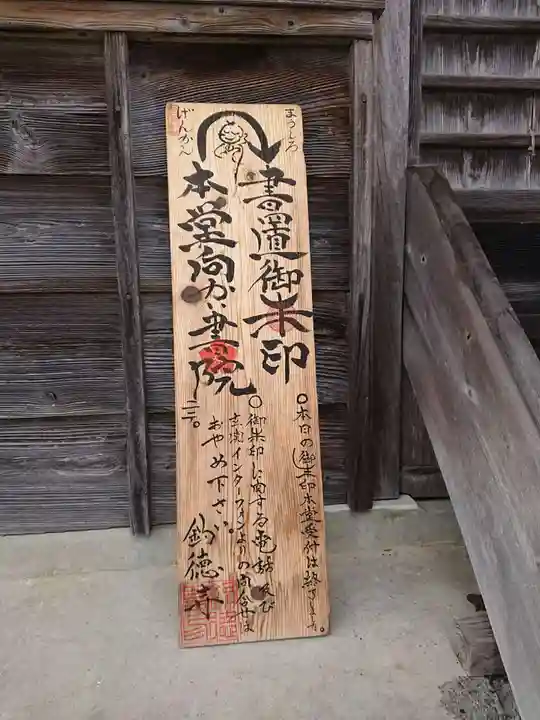 まうしろ
書置御朱印
げんかん
本堂向かい書院
ニテ。
〇本日の御朱印本堂受付は終了しました。
〇御朱印に関する電話及び
玄関インターフォンよりの問合せは
おやめ下さい。
釣徳寺